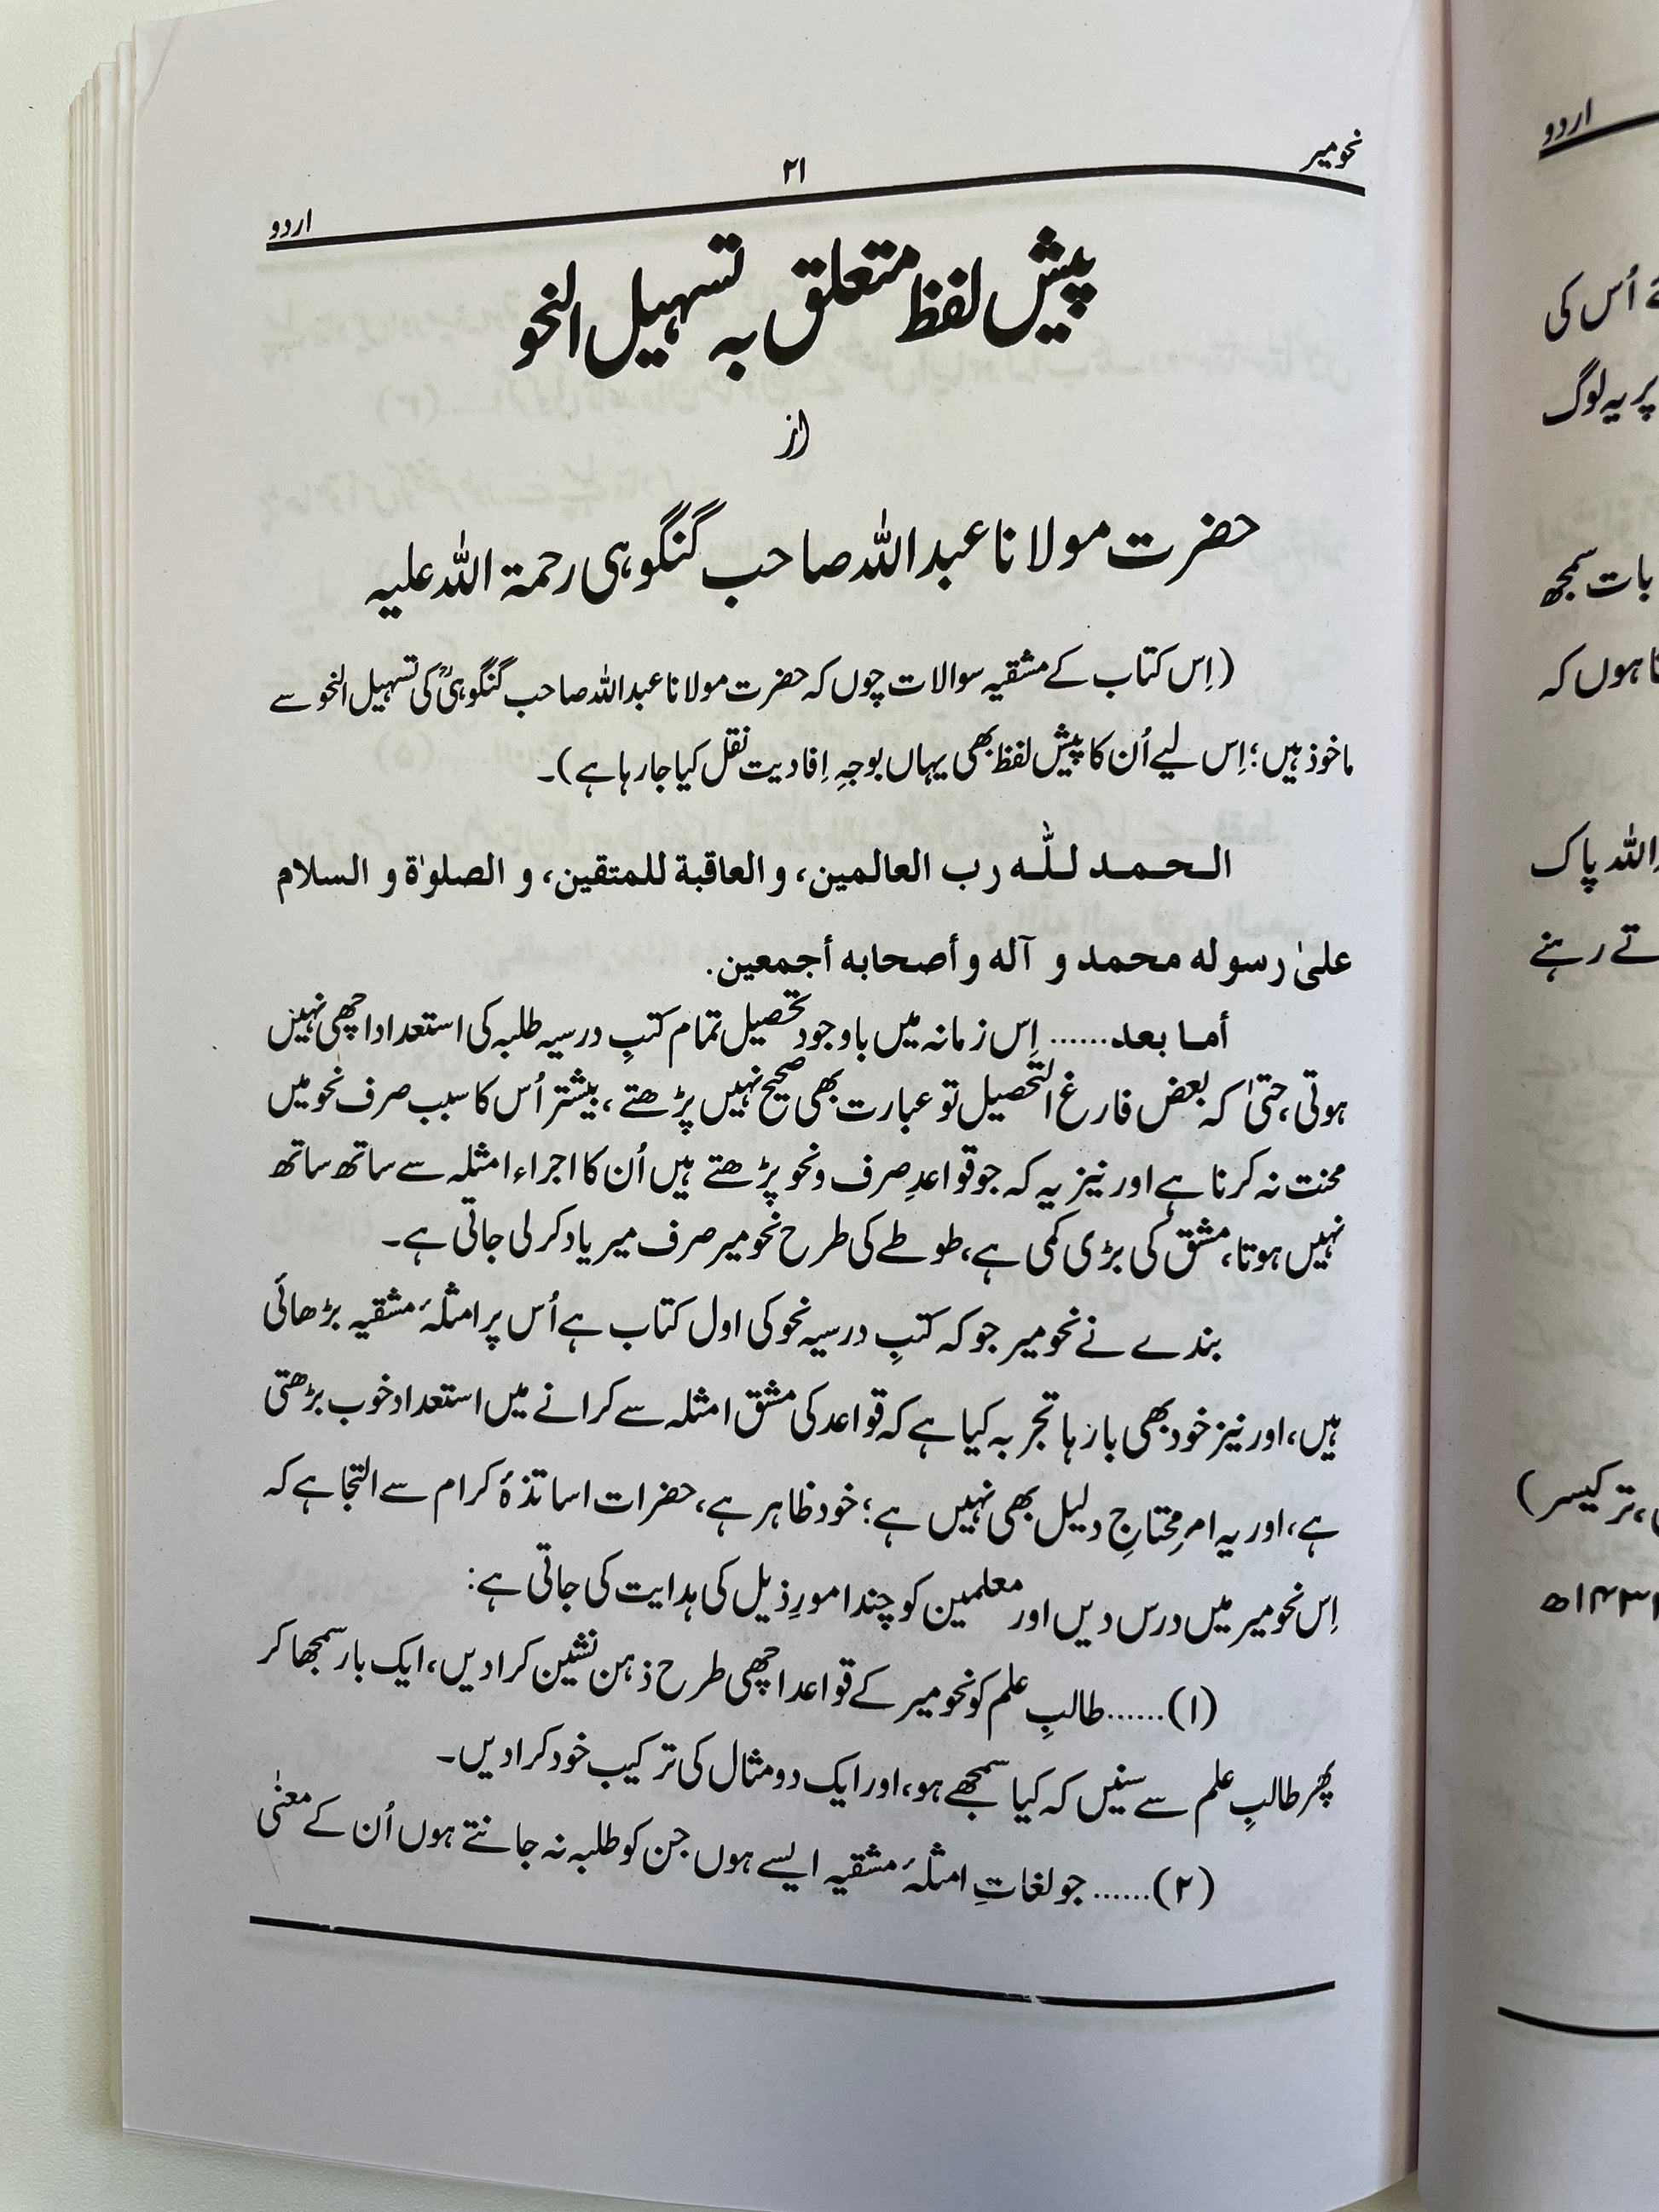 نحومیر
۲۱
اردو
پیش لفظ متعلق بہ تسہیل النحو
از
حضرت مولانا عبداللہ صاحب گنگوہی رحمۃ اللہ علیہ
(اِس کتاب کے مشقیہ سوالات چوں کہ حضرت مولانا عبداللہ صاحب گنگوہیؒ کی تسہیل النحو سے
ماخوذ ہیں؛ اِس لیے اُن کا پیش لفظ بھی یہاں بوجہِ اِفادیت نقل کیا جارہا ہے)۔
الـحـمـد لـلّٰـه رب العالمين، و العاقبة للمتقين، و الصلوٰة و السلام
علىٰ رسوله محمد و آله و أصحابه أجمعين.
أما بعد...... اِس زمانہ میں باوجود تحصیل تمام کتبِ درسیہ طلبہ کی استعداد اچھی نہیں
ہوتی، حتیٰ کہ بعض فارغ التحصیل تو عبارت بھی صحیح نہیں پڑھتے، بیشتر اُس کا سبب صرف نحو میں
محنت نہ کرنا ہے اور نیز یہ کہ جو قواعدِ صرف ونحو پڑھتے ہیں اُن کا اجراء امثلہ سے ساتھ ساتھ
نہیں ہوتا، مشق کی بڑی کمی ہے، طوطے کی طرح نحومیر صرف میر یاد کر لی جاتی ہے۔
بندے نے نحومیر جو کہ کتبِ درسیہ نحو کی اول کتاب ہے اُس پر امثلۂ مشقیہ بڑھائی
ہیں، اور نیز خود بھی بارہا تجربہ کیا ہے کہ قواعد کی مشق امثلہ سے کرانے میں استعداد خوب بڑھتی
ہے، اور یہ امرِ محتاجِ دلیل بھی نہیں ہے؛ خود ظاہر ہے، حضرات اساتذۂ کرام سے التجا ہے کہ
اِس نحومیر میں درس دیں اور معلمین کو چند امورِ ذیل کی ہدایت کی جاتی ہے:
(۱)......طالبِ علم کو نحومیر کے قواعد اچھی طرح ذہن نشین کرادیں، ایک بار سمجھا کر
پھر طالبِ علم سے سنیں کہ کیا سمجھے ہو، اور ایک دو مثال کی ترکیب خود کرادیں۔
(۲)...... جو لغاتِ امثلۂ مشقیہ ایسے ہوں جن کو طلبہ نہ جانتے ہوں اُن کے معنٰی
اردو
اُس کی
پر یہ لوگ
بات سمجھ
ہوں کہ
اللہ پاک
تے رہنے
، ترکیسر)